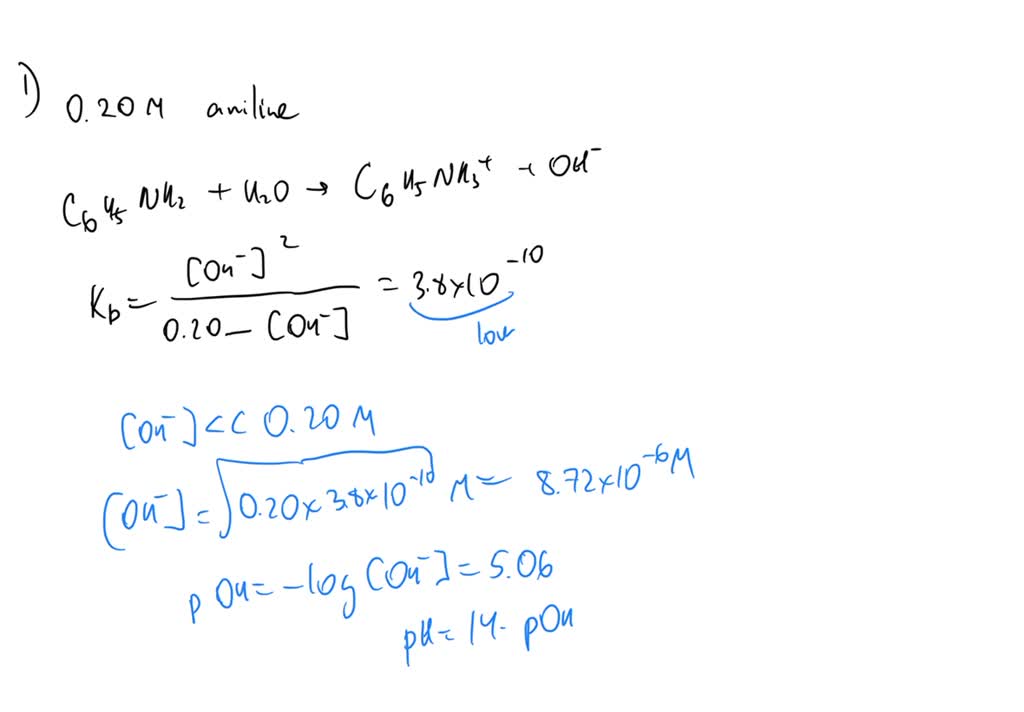 1) 0.20 M aniline
C₆H₅NH₂ + H₂O → C₆H₅NH₃⁺ + OH⁻
K_b = [OH⁻]² / (0.20 – [OH⁻]) = 3.8×10⁻¹⁰
low
[OH⁻] << 0.20 M
[OH⁻] = √(0.20 × 3.8×10⁻¹⁰) M = 8.72×10⁻⁶ M
pOH = –log[OH⁻] = 5.06
pH = 14 - pOH